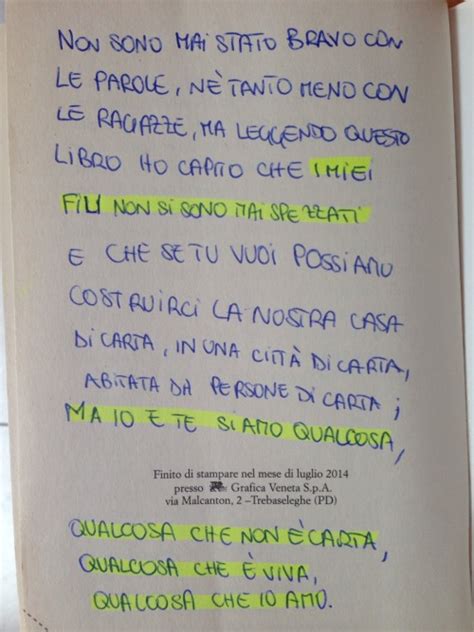 NON SONO MAI STATO BRAVO CON
LE PAROLE, NÈ TANTO MENO CON
LE RAGAZZE, MA LEGGENDO QUESTO
LIBRO HO CAPITO CHE I MIEI
FILI NON SI SONO MAI SPEZZATI
E CHE SE TU VUOI POSSIAMO
COSTRUIRCI LA NOSTRA CASA
DI CARTA, IN UNA CITTÀ DI CARTA,
ABITATA DA PERSONE DI CARTA;
MA IO E TE SIAMO QUALCOSA,
Finito di stampare nel mese di luglio 2014
presso Grafica Veneta S.p.A.
via Malcanton, 2 –Trebaseleghe (PD)
QUALCOSA CHE NON È CARTA,
QUALCOSA CHE È VIVA,
QUALCOSA CHE IO AMO.